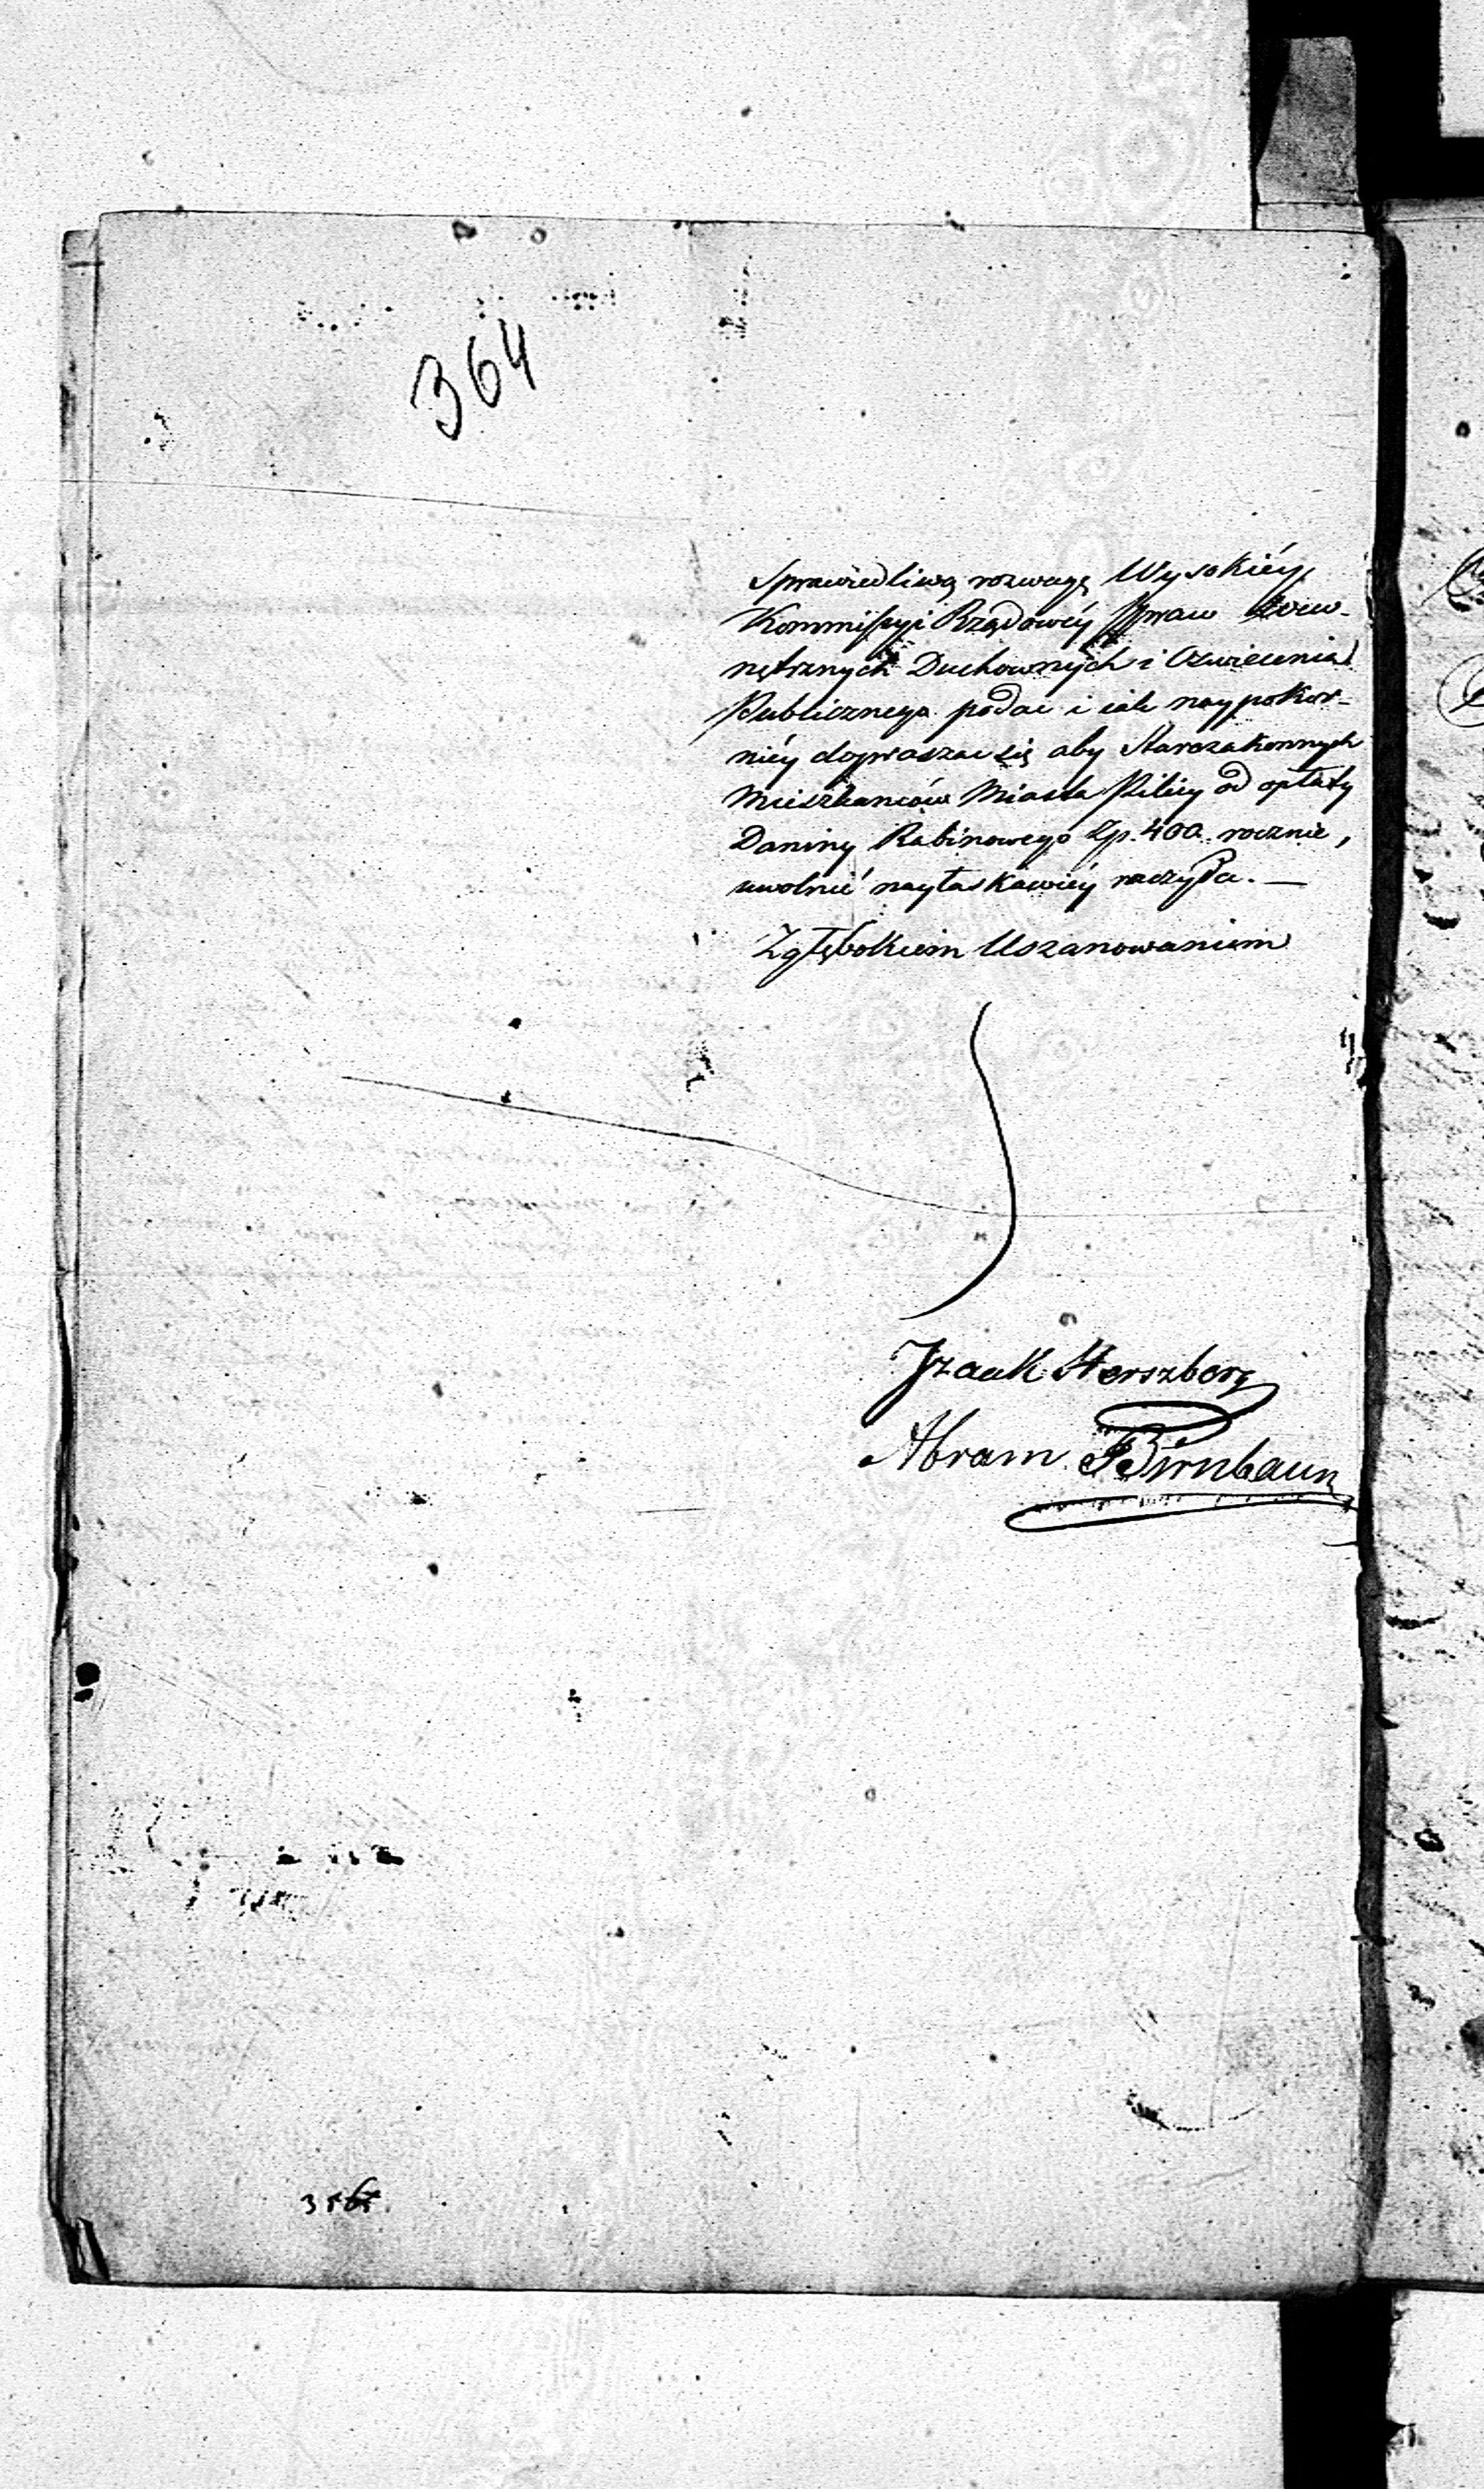 364
Sprawiedliwą rozwagę Wysokiéy
Kommissyi Rządowéy Spraw Wew-
nętrznych Duchownych i Oświecenia
Publicznego podać i iak naypokor-
niéy dopraszać się aby Starozakonnych
Mieszkańców Miasta Pilicy od opłaty
Daniny Rabinowego Zp. 400. rocznie,
uwolnić nayłaskawiéy raczyła. —
Z głębokiem Uszanowaniem
Izaak Herszberg
Abram Birnbaum